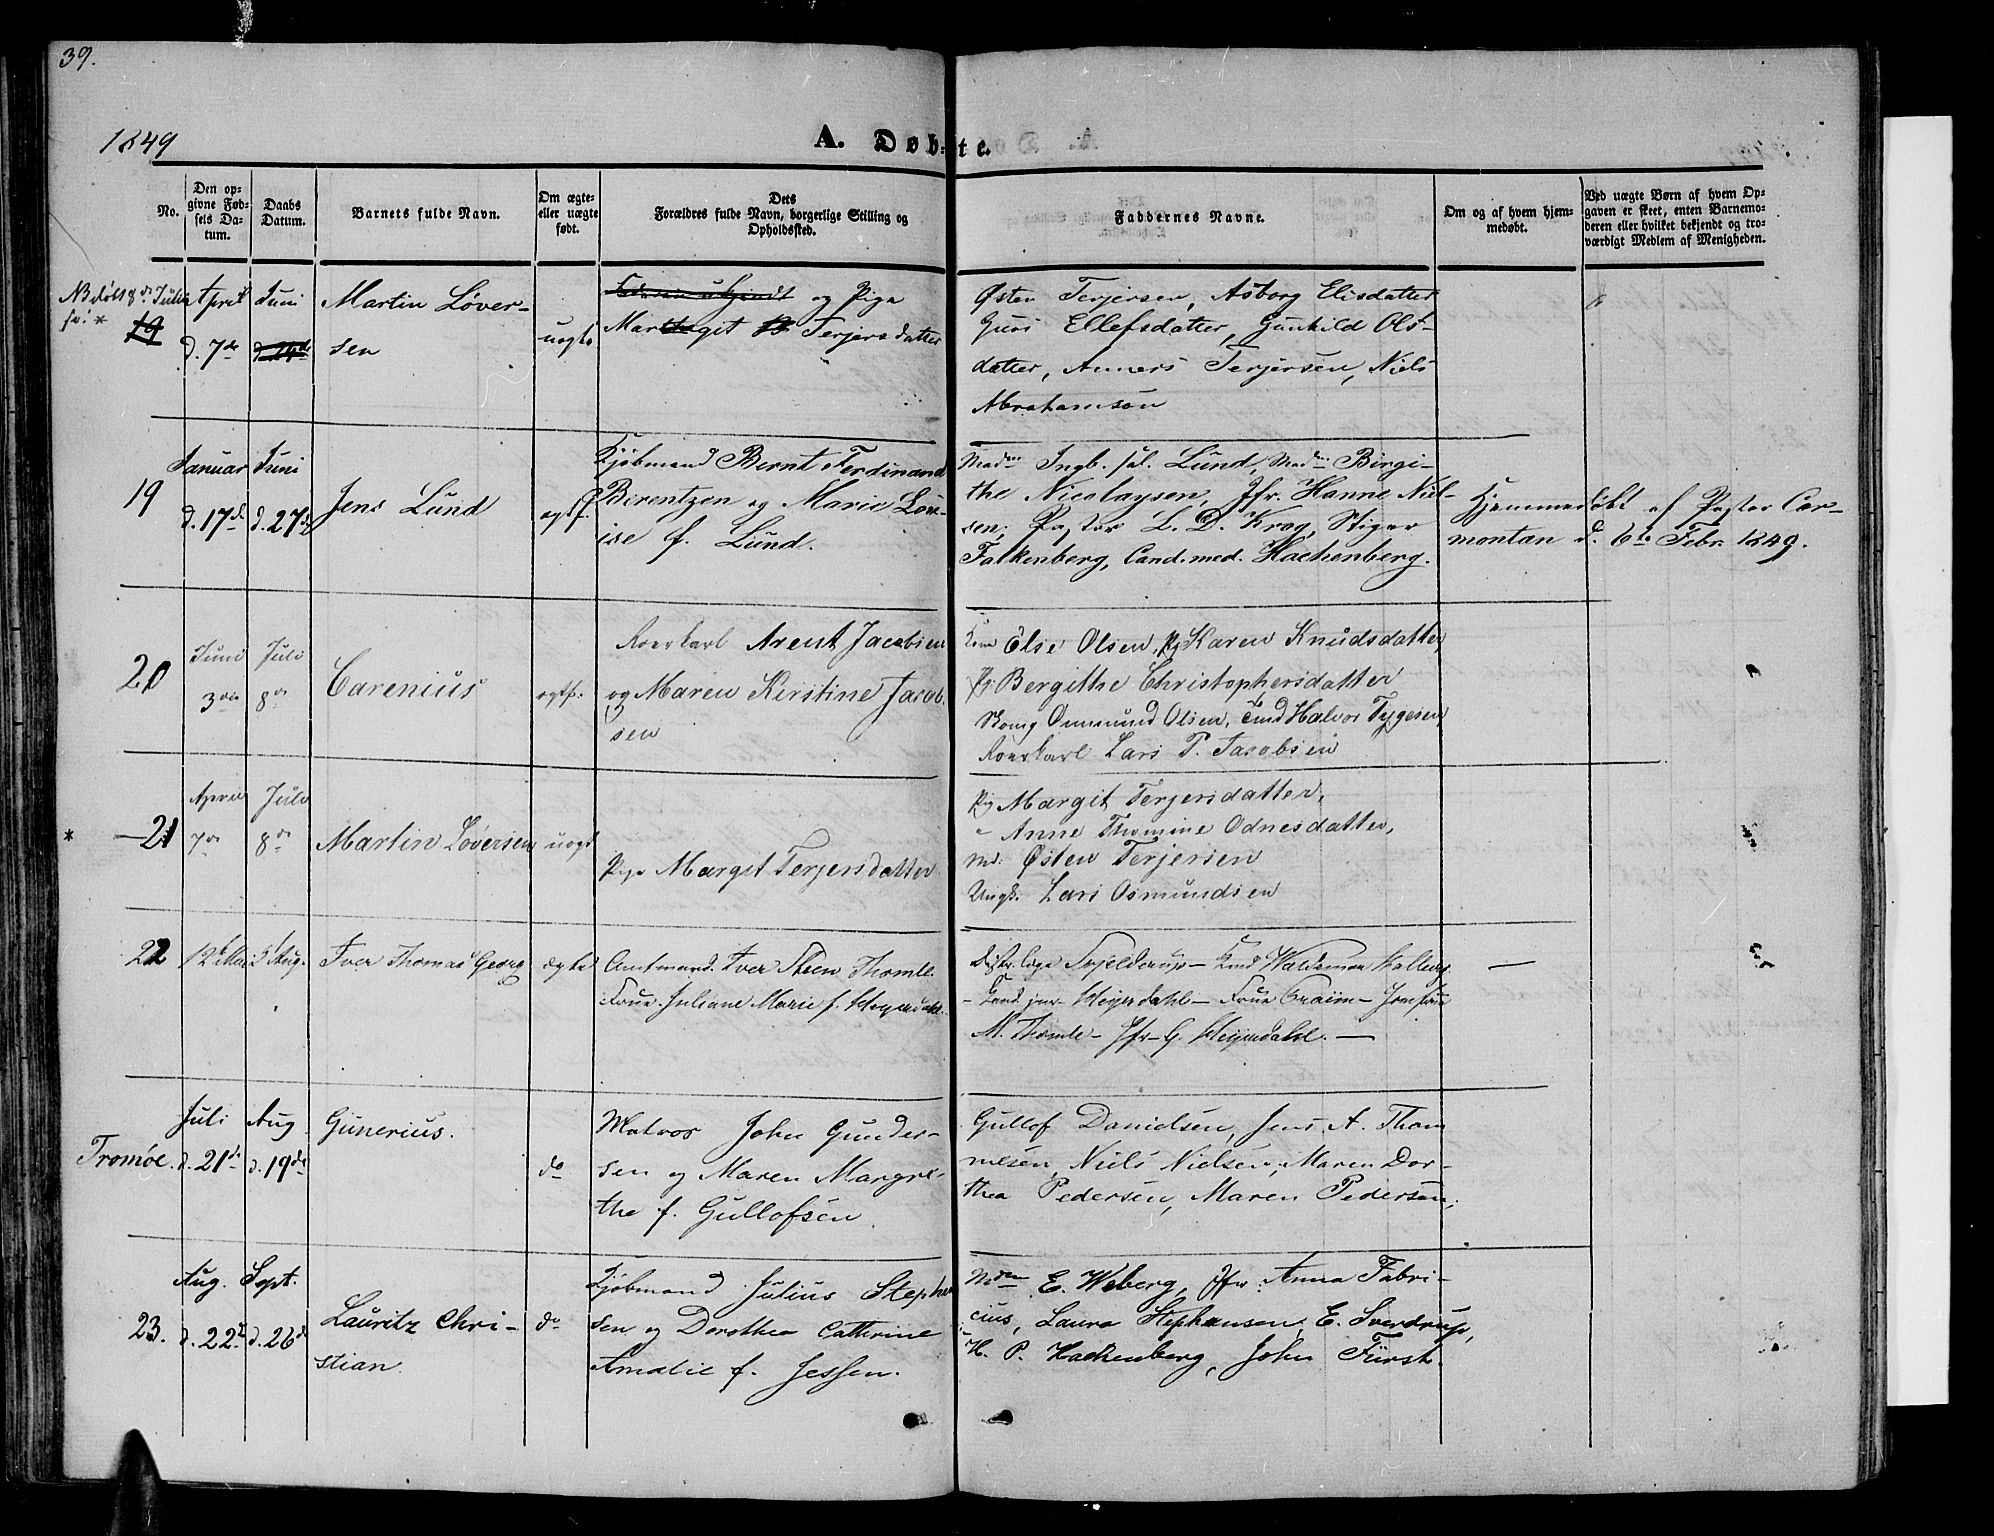 39.
1849
A. Døb-te.
No.
Den op-
givne Fød-
sels Da-
tum.
Daabs
Datum.
Barnets fulde Navn.
Om ægte-
eller uægte
født.
Dets
Forældres fulde Navn, borgerlige Stilling og
Opholdssted.
Faddernes Navne.
Om og af hvem hjem-
medøbt.
Ved uægte Børn af hvem Op-
gaven er skeet, enten Barnemo-
deren eller hvilket bekjendt og tro-
værdigt Medlem af Menigheden.
NB døbt 8de Julii
19
April
d. 7de
Juni
Martin Løver-
sen
uægte
og Pige
Margit Terjersdatter
Østen Terjersen, Asborg Elisdatter
Guro Ellefsdatter, Gunhild Ols-
datter, Anners Terjersen, Niels
Abrahamson
19
Januar
d. 17de
Juni
d. 27de
Jens Lund
ægtf.
Kjøbmand Bernt Ferdinand
Berentzen og Marie Lou-
ise f. Lund.
Madm Ingb. sal. Lund, Madm Birgi-
the Nicolaysen, Jfr. Hanne Niel-
sen, Pastor L. D. Krog, Stiger
Falkenberg, Cand. med. Hackenberg.
Hjemmedøbt af Pastor Car-
montan d. 6te Febr. 1849.
20
Juni
3die
Juli
8de
Carenius
ægtf.
Roerkarl Arent Jacobsen
og Maren Kirstine Jacob-
sen
Kone Elsie Olsen, Pg Karen Knudsdatter
Pg Bergithe Christophersdatter
Ommund Olsen, Halvor Tygesen
Roerkarl Lars P. Jacobsen
* 21
April
7de
Juli
8de
Martin Løversen
uægt
Pige Margit Terjersdatter
Pg Margit Terjersdatter,
" Anne Thomine Odnesdatter,
Md: Østen Terjersen
Ungk. Lars Osmundsen
22
12te Mai
2 Aug.
Iver Thomas Georg
ægte
Amtmand Iver Steen Thomle
Frue Juliane Marie f. Heyerdahl.
Distr. læge Hjelderup –
– Cand. jur. Heyerdahl – Frue
M. Thomle – Jfr. G. Heyerdahl. —
—
Tromøe.
Juli
d. 21de
Aug
d. 19de
Gunerius.
do
Matros John Gunder-
sen og Maren Margre-
the f. Gullofsen
Gullof Danielsen, Jens A. Thom-
mesen, Niels Nielsen, Maren Dor-
thea Pedersen, Maren Pedersen.
23.
Aug.
d. 22de
Sept.
d. 26de
Lauritz Chri-
stian.
do
Kjøbmand Julius Stephan-
sen og Dorothea Cathrine
Amalie f. Jessen.
Mdm E. Weberg, Jfr: Anna Fabri-
cius, Laura Stephansen, E. Sverdrup,
H. P. Hackenberg, John Fürst.